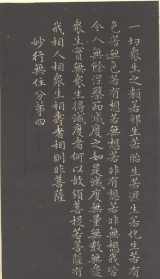 一切眾生之類若卵生若胎生若濕生若化生若有
色若無色若有想若無想若非有想非無想我皆
令入無餘涅槃而滅度之如是滅度無量無數無邊
眾生實無眾生得滅度者何以故須菩提若菩薩有
我相人相眾生相壽者相即非菩薩
妙行無住分第四